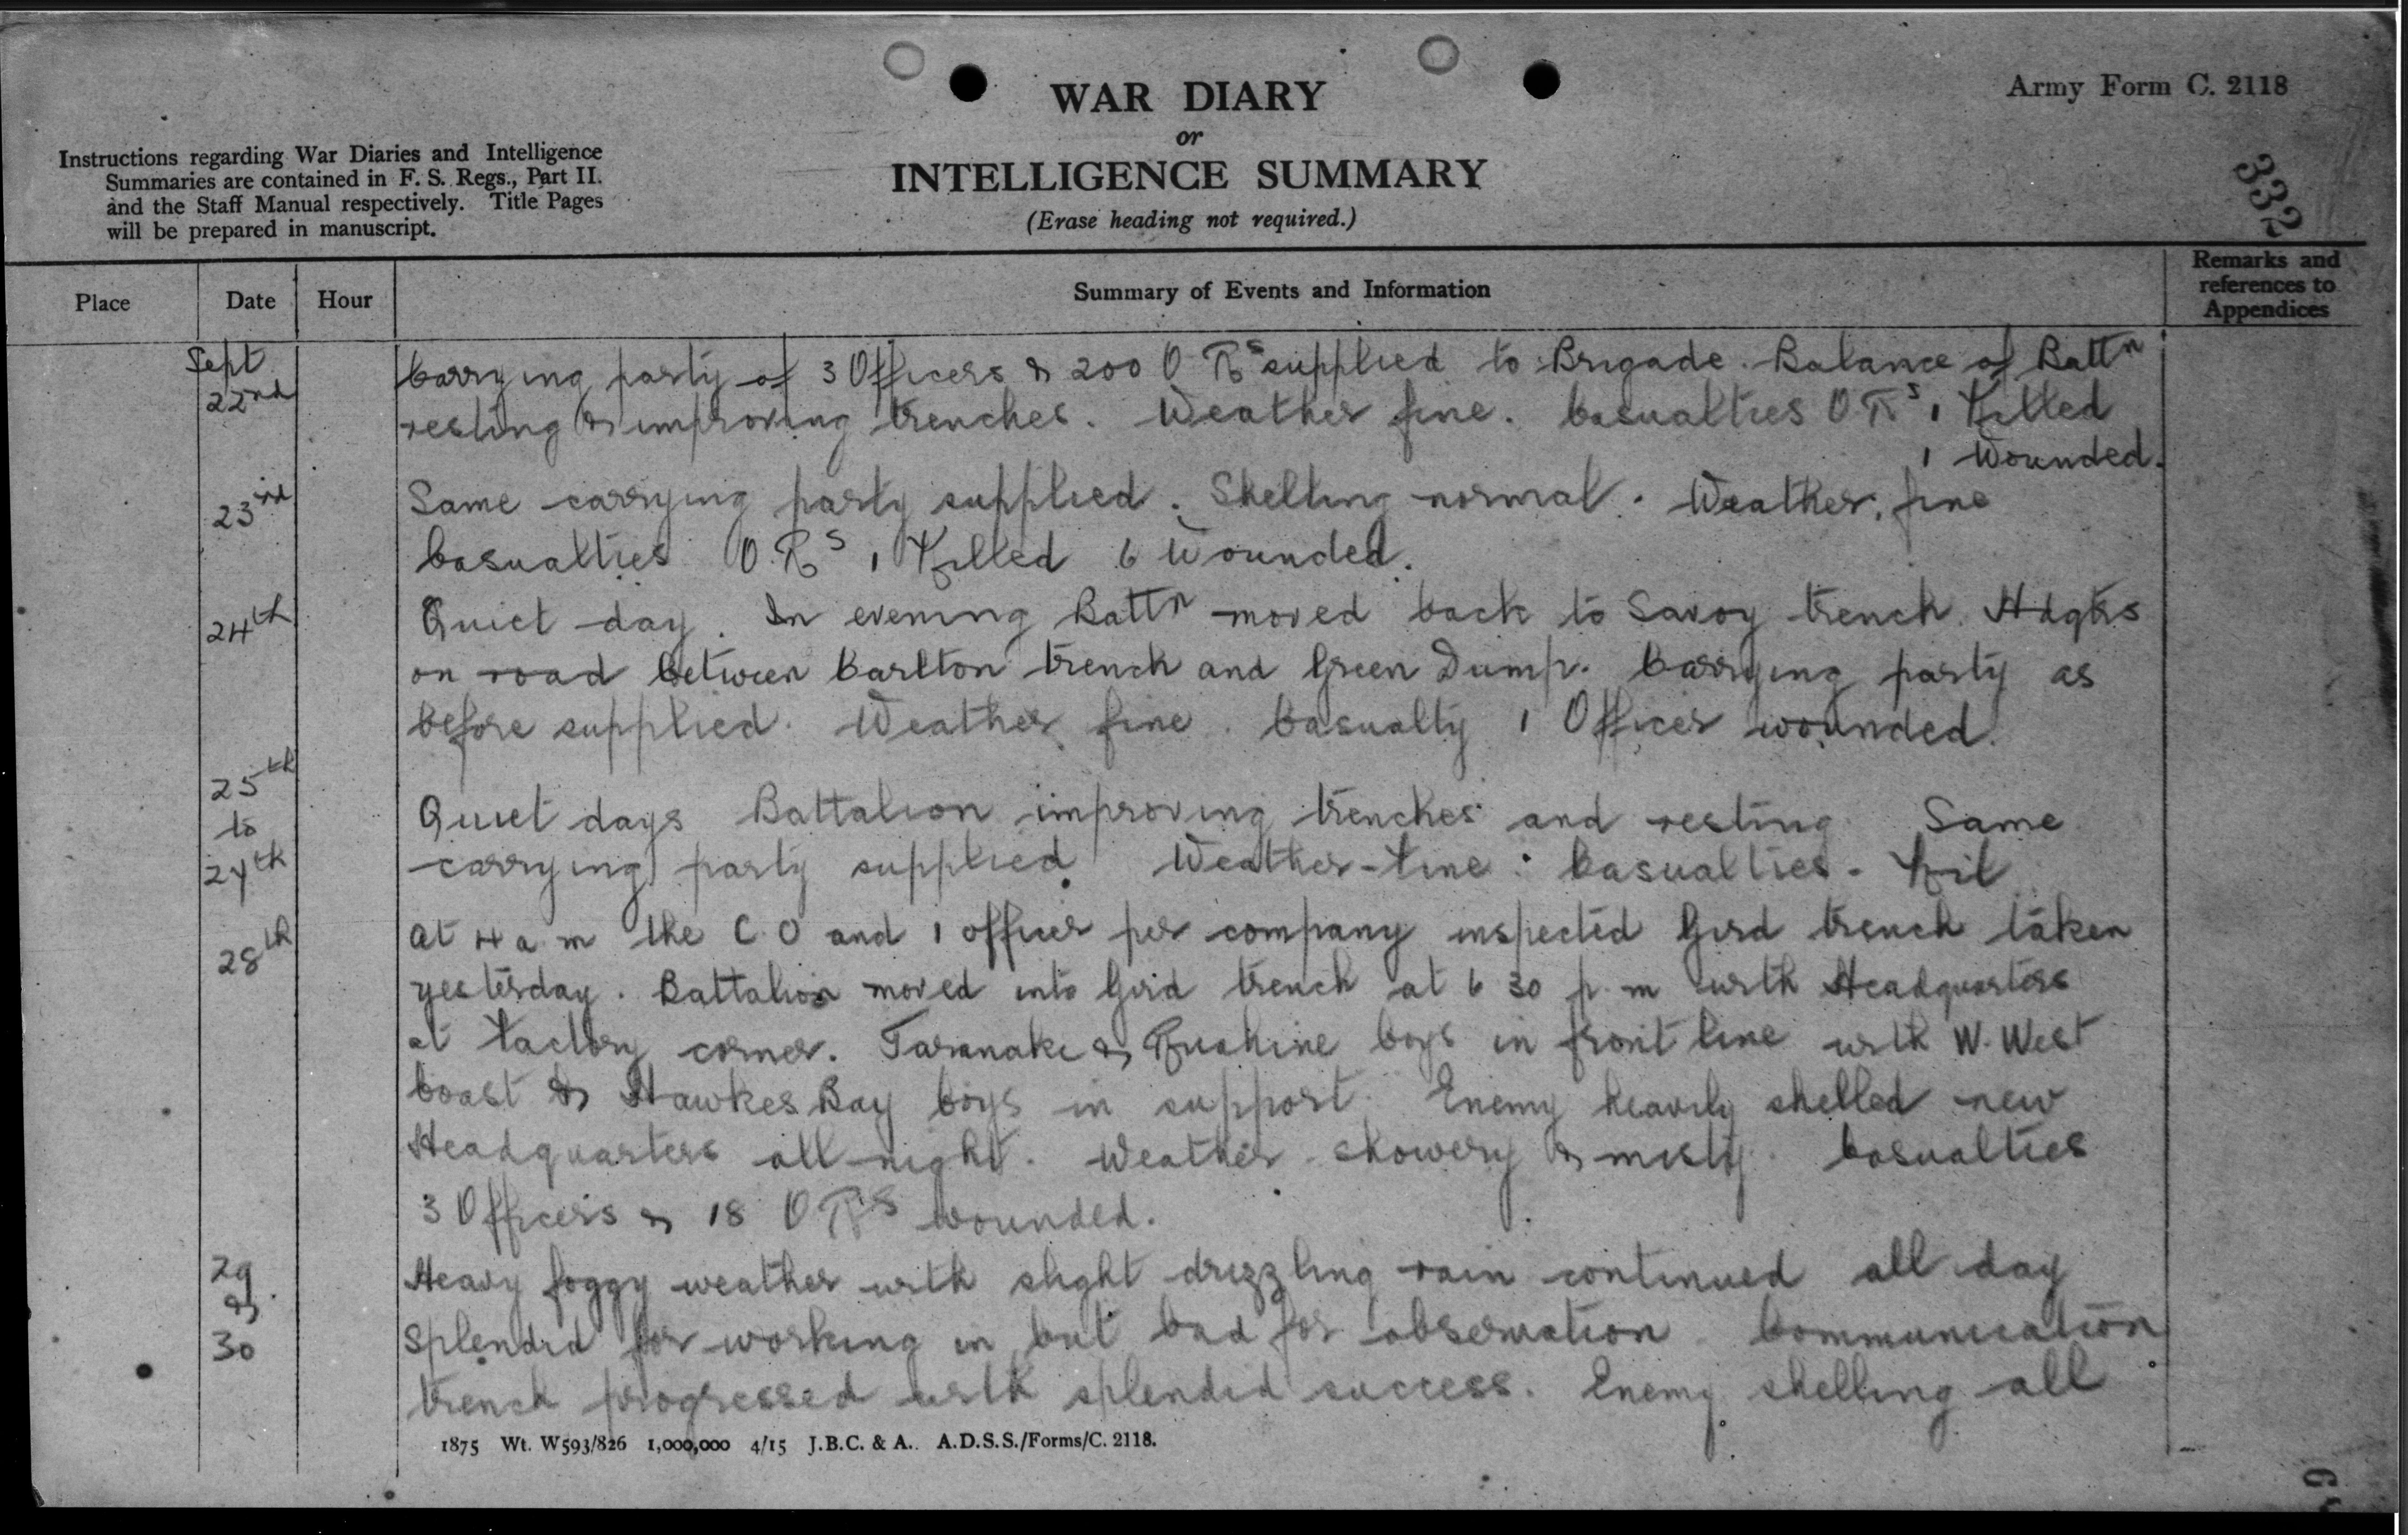 WAR DIARY
or
INTELLIGENCE SUMMARY
(Erase heading not required.)
Army Form C. 2118
332
Instructions regarding War Diaries and Intelligence
Summaries are contained in F. S. Regs., Part II.
and the Staff Manual respectively. Title Pages
will be prepared in manuscript.
Place Date Hour Summary of Events and Information Remarks and references to Appendices
Sept
22nd
Carrying party of 3 Officers & 200 O Rs supplied to Brigade. Balance of Battn
resting & improving trenches. Weather fine. Casualties O.Rs 1 Killed
1 Wounded.
23rd
Same carrying party supplied. Shelling normal. Weather fine
Casualties O.Rs 1 Killed 6 Wounded.
24th
Quiet day. In evening Battn moved back to Savoy trench. Hdqtrs
on road between Carlton trench and Green Dump. Carrying party as
before supplied. Weather fine. Casualty 1 Officer wounded.
25th
to
27th
Quiet days Battalion improving trenches and resting Same
carrying party supplied. Weather-fine: Casualties - Nil
28th
At 4 a.m the C.O and 1 officer per company inspected Gird trench taken
yesterday. Battalion moved into Gird trench at 6 30 p.m with Headquarters
at Factory corner. Taranaki & Ruahine Coys in front line with W. West
Coast & Hawkes Bay Coys in support. Enemy heavily shelled new
Headquarters all night. Weather showery & misty. Casualties
3 Officers & 18 O Rs wounded.
29
&
30
Heavy foggy weather with slight drizzling rain continued all day
Splendid for working in but bad for observation. Communication
trench progressed with splendid success. Enemy shelling all
1875 Wt. W593/826 1,000,000 4/15 J.B.C. & A. A.D.S.S./Forms/C. 2118.